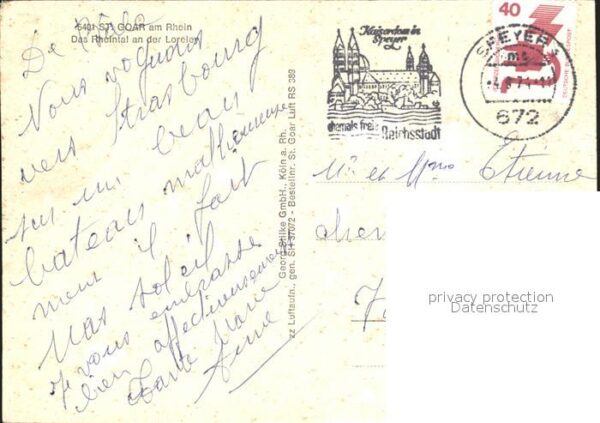 5401 ST. GOAR am Rhein
Das Rheintal an der Loreley
Nous voguons
vers Strasbourg
sur un beau
bateau malheureuse
ment il fait
pas soleil
Je vous embrasse
bien affectueusement
Georg Stilke GmbH., Köln a. Rh.
zz Luftaufn., gen. SH 37072 - Bestellnr. St. Goar Luft RS 389
Kaiserdom in
Speyer
ehemals freie
Reichsstadt
SPEYER 1
672
40
DEUTSCHE BUNDESPOST
Mr et Mme Etienne
privacy protection
Datenschutz